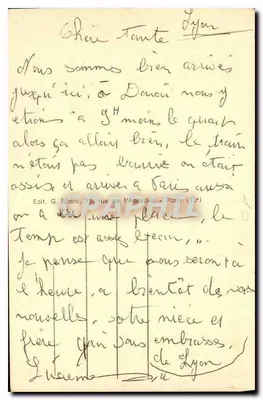 Lyon
Chère tante
Nous sommes bien arrivés
jusqu'ici. à Douai nous y
étions à 9H moins le quart
alors ça allait bien, le train
n'était pas bourré on était
assis et arriver à Paris aussi
Edit. G. rue de l'Apostrophe Paris (12)
on a eu une place, le
temp est assez beau,
je pense que nous seront à
l'heure, a bientôt de vos
nouvelles, votre nièce et
frère qui vous embrasses,
de Lyon